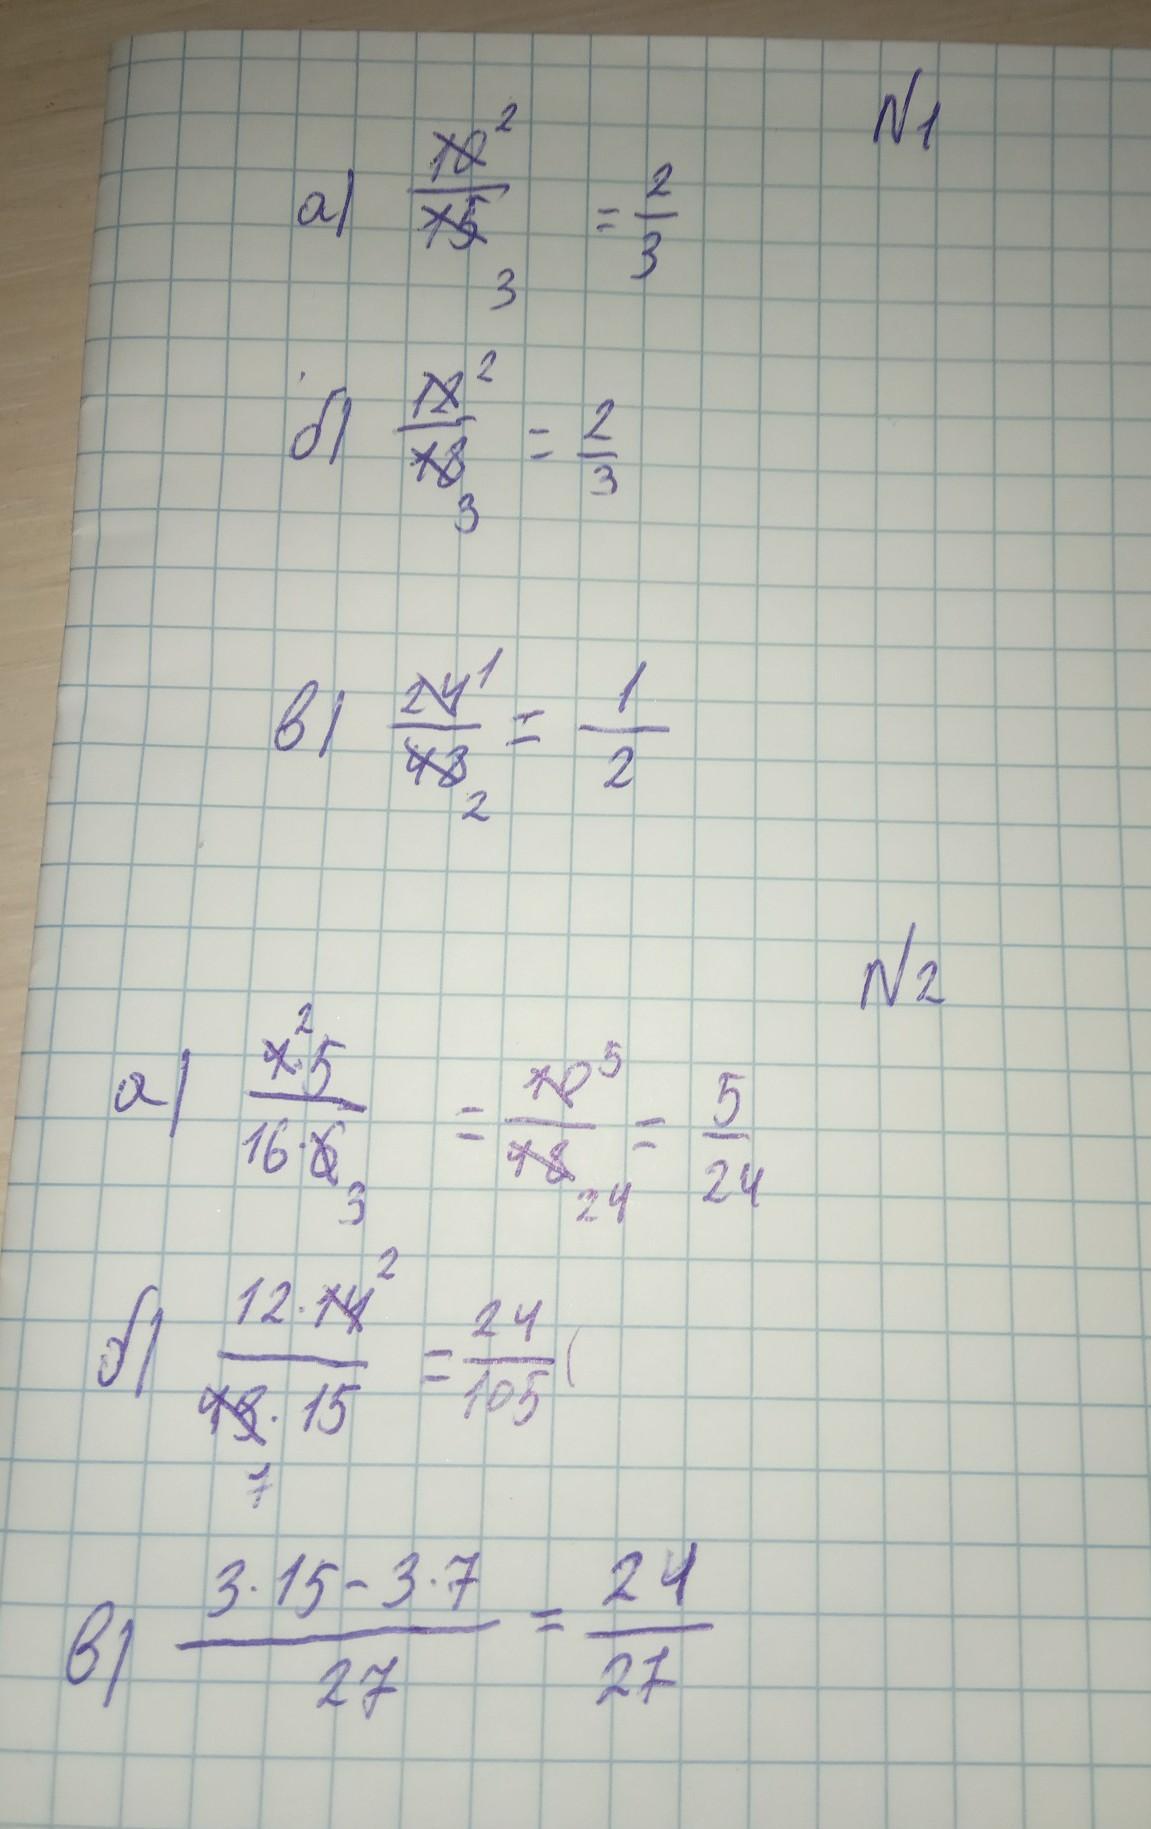 N1
а) 10/15 2 3 = 2/3
б) 12/18 2 3 = 2/3
в) 24/48 1 2 = 1/2
N2
а) 4·5/16·6 2 3 = 10/48 5 24 = 5/24
б) 12·14/49·15 2 7 = 24/105
в) 3·15-3·7/27 = 24/27